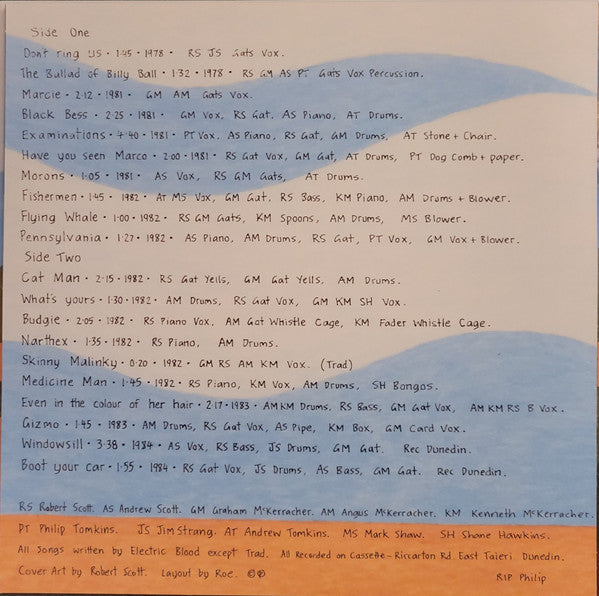 Side One
Don't ring US · 1·45 · 1978 · RS JS Gats Vox.
The Ballad of Billy Ball · 1·32 · 1978 · RS GM AS PT Gats Vox Percussion.
Marcie · 2·12 · 1981 · GM AM Gats Vox.
Black Bess · 2·25 · 1981 · GM Vox, RS Gat. AS Piano, AT Drums.
Examinations · 4·40 · 1981 · PT Vox. AS Piano, RS Gat, GM Drums, AT Stone + Chair.
Have you seen Marco · 2·00 · 1981 · RS Gat Vox, GM Gat, AT Drums, PT Dog Comb + paper.
Morons · 1·05 · 1981 · AS Vox, RS GM Gats, AT Drums.
Fishermen · 1·45 · 1982 · AT MS Vox, GM Gat. RS Bass, KM Piano, AM Drums + Blower.
Flying Whale · 1·00 · 1982 · RS GM Gats, KM Spoons, AM Drums, MS Blower.
Pennsylvania · 1·27 · 1982 · AS Piano, AM Drums, RS Gat, PT Vox, GM Vox + Blower.
Side Two
Cat Man · 2·15 · 1982 · RS Gat Yells, GM Gat Yells. AM Drums.
What's yours · 1·30 · 1982 · AM Drums, RS Gat Vox, GM KM SH Vox.
Budgie · 2·05 · 1982 · RS Piano Vox. AM Gat Whistle Cage, KM Fader Whistle Cage.
Narthex · 1·35 · 1982 · RS Piano, AM Drums.
Skinny Malinky · 0·20 · 1982 · GM RS AM KM Vox. (Trad)
Medicine Man · 1·45 · 1982 · RS Piano, KM Vox, AM Drums, SH Bongos.
Even in the colour of her hair · 2·17 · 1983 · AM KM Drums. RS Bass, GM Gat Vox, AM KM RS B Vox.
Gizmo · 1·45 · 1983 · AM Drums, RS Gat Vox, AS Pipe, KM Box, GM Card Vox.
Windowsill · 3·38 · 1984 · AS Vox, RS Bass, JS Drums, GM Gat. Rec Dunedin.
Boot your car · 1·55 · 1984 · RS Gat Vox, JS Drums, AS Bass, GM Gat. Rec Dunedin.
RS Robert Scott. AS Andrew Scott. GM Graham McKerracher. AM Angus McKerracher. KM Kenneth McKerracher.
PT Philip Tomkins. JS Jim Strang. AT Andrew Tomkins. MS Mark Shaw. SH Shane Hawkins.
All Songs written by Electric Blood except Trad. All Recorded on Cassette – Riccarton Rd. East Taieri. Dunedin.
Cover Art by Robert Scott. Layout by Roe. ©℗
RIP Philip